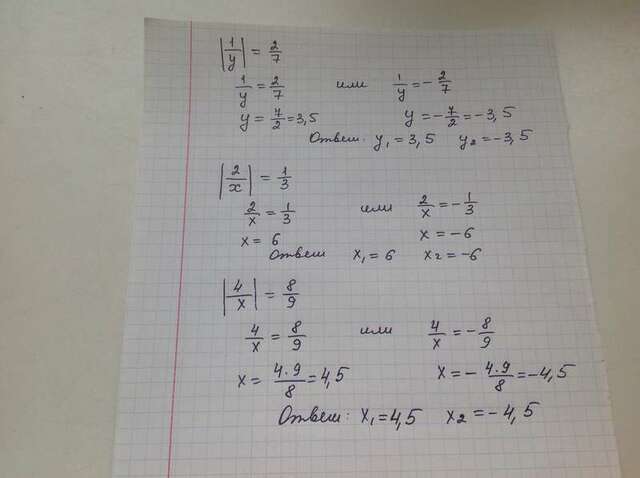 |1/y| = 2/7
1/y = 2/7 или 1/y = -2/7
y = 7/2 = 3,5 y = -7/2 = -3,5
Ответ. y₁ = 3,5 y₂ = -3,5
|2/x| = 1/3
2/x = 1/3 или 2/x = -1/3
x = 6 x = -6
Ответ x₁ = 6 x₂ = -6
|4/x| = 8/9
4/x = 8/9 или 4/x = -8/9
x = 4·9/8 = 4,5 x = -4·9/8 = -4,5
Ответ: x₁ = 4,5 x₂ = -4,5